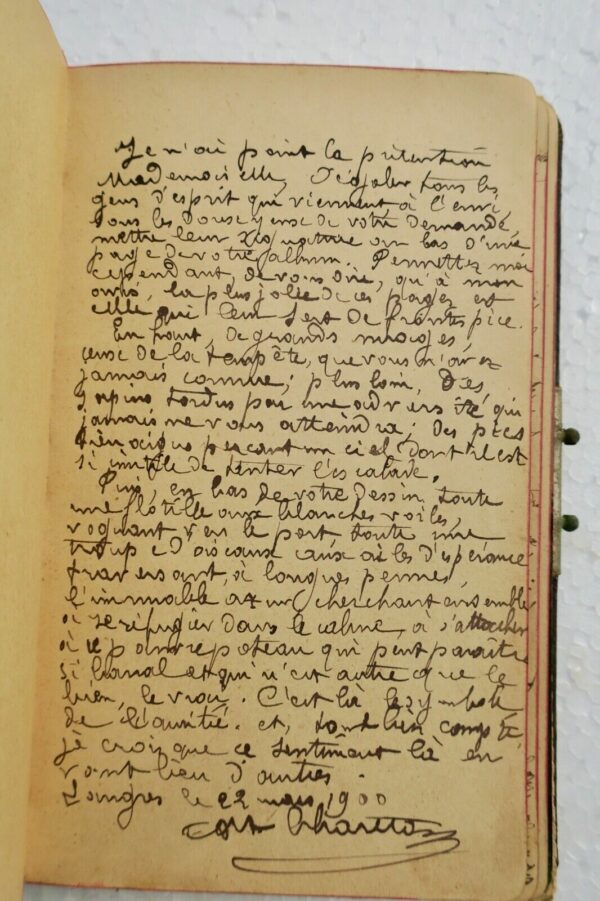 Je n'ai point la prétention
Mademoiselle, d'égaler tous les
gens d'esprit qui viennent à l'envi
sous les doux yeux de votre demande,
mettre leur signature au bas d'une
page de votre album. Permettez moi
cependant, de vous dire, qu'à mon
avis, la plus jolie de ces pages est
celle qui leur sert de frontispice.
En haut, de grands nuages,
ceux de la tempête, que vous n'avez
jamais connue; plus loin, Des
sapins tordus par une adversité qui
jamais ne vous atteindra; des pics
bien aigus perçant un ciel dont il est
si inutile de tenter l'escalade.
Puis, en bas de votre dessin toute
une flotille aux blanches voiles,
voguant vers le port, toute une
troupe d'oiseaux aux ailes d'espérance
traversant, à longues pennes,
l'immuable azur cherchant ensemble
à se réfugier dans le calme, à s'attacher
à ce pauvre poteau qui peut paraître
si banal et qui n'est autre que le
bien, le vrai. C'est là le symbole
de l'amitié. et, tout bien compté,
je crois que ce sentiment là en
vaut bien d'autres.
Langres le 22 mars 1900